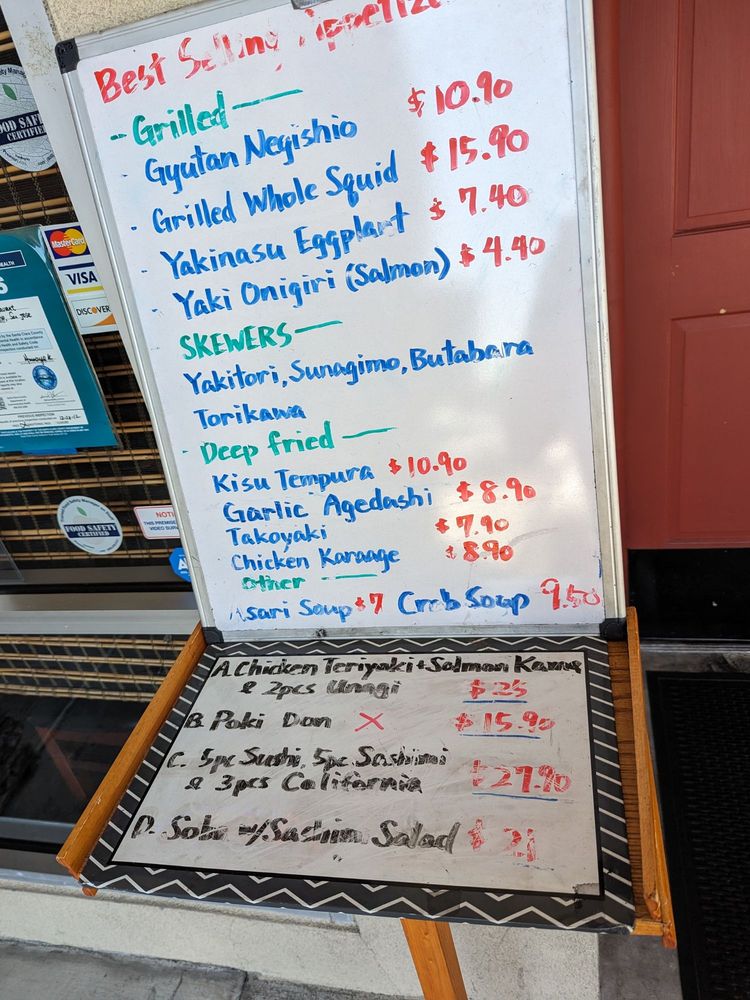 Best Selling Appetize
- Grilled —
- Gyutan Negishio $10.90
- Grilled Whole Squid $15.90
- Yakinasu Eggplant $7.40
- Yaki Onigiri (Salmon) $4.40
SKEWERS —
Yakitori, Sunagimo, Butabara
Torikawa
- Deep fried —
Kisu Tempura $10.90
Garlic Agedashi $8.90
Takoyaki $7.90
Chicken Karaage $8.90
Other —
Asari Soup $7 Crab Soup 9.50
A. Chicken Teriyaki + Salmon Kama
& 2pcs Unagi $25
B. Poki Don X $15.90
C. 5pc Sushi, 5pc Sashimi
& 3pcs California $27.90
D. Soba w/ Sashim Salad $21
FOOD SAFE
CERTIFIED
MasterCard
VISA
DISCOVER
HEALTH
FOOD SAFETY
CERTIFIED
NOTI
THIS PREMISE
VIDEO SURV